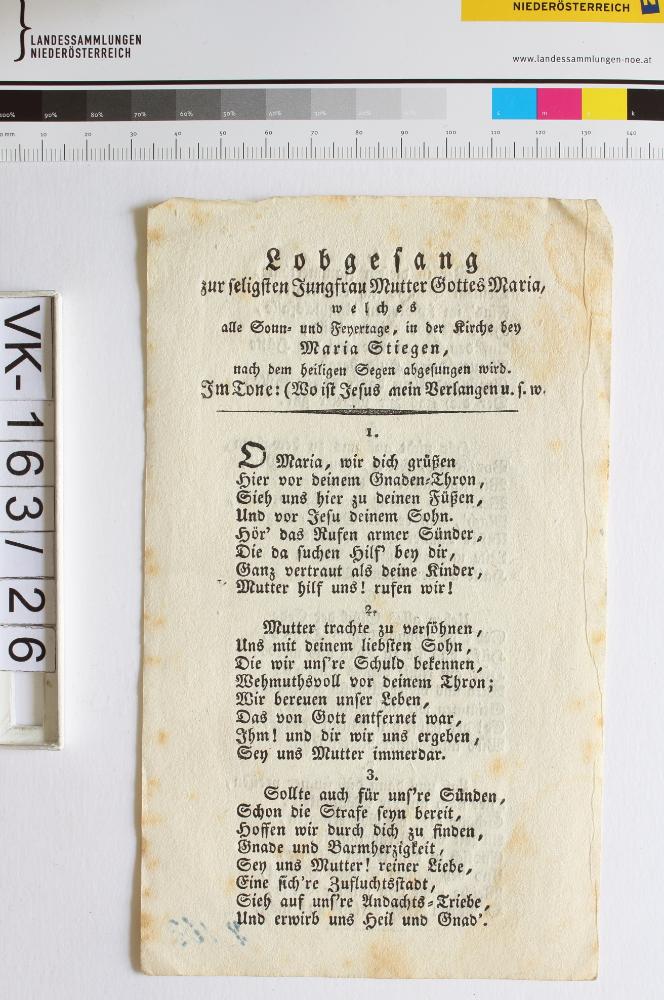 NIEDERÖSTERREICH
LANDESSAMMLUNGEN
NIEDERÖSTERREICH
www.landessammlungen-noe.at
100% 90% 80% 70% 60% 50% 40% 30% 20% 10% c m y k
0 mm 10 20 30 40 50 60 70 80 90 100 110 120 130 140
VK-163/26
Lobgesang
zur seligsten Jungfrau Mutter Gottes Maria,
welches
alle Sonn- und Feyertage, in der Kirche bey
Maria Stiegen,
nach dem heiligen Segen abgesungen wird.
Im Tone: (Wo ist Jesus mein Verlangen u. s. w.
1.
O Maria, wir dich grüßen
Hier vor deinem Gnaden-Thron,
Sieh uns hier zu deinen Füßen,
Und vor Jesu deinem Sohn.
Hör' das Rufen armer Sünder,
Die da suchen Hilf' bey dir,
Ganz vertraut als deine Kinder,
Mutter hilf uns! rufen wir!
2.
Mutter trachte zu versöhnen,
Uns mit deinem liebsten Sohn,
Die wir uns're Schuld bekennen,
Wehmuthsvoll vor deinem Thron;
Wir bereuen unser Leben,
Das von Gott entfernet war,
Ihm! und dir wir uns ergeben,
Sey uns Mutter immerdar.
3.
Sollte auch für uns're Sünden,
Schon die Strafe seyn bereit,
Hoffen wir durch dich zu finden,
Gnade und Barmherzigkeit,
Sey uns Mutter! reiner Liebe,
Eine sich're Zufluchtsstadt,
Sieh auf uns're Andachts-Triebe,
Und erwirb uns Heil und Gnad'.